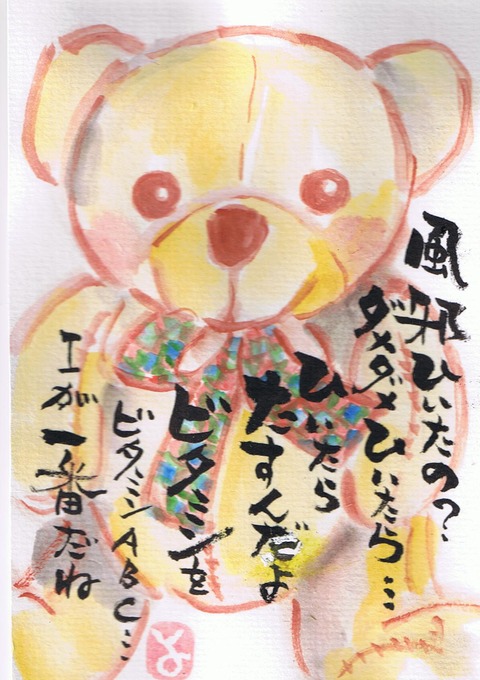 風邪ひいたの?
ダメダメひいたら…
ひいたら
たすんだよ
ビタミンを
ビタミンABC…
エが一番だね